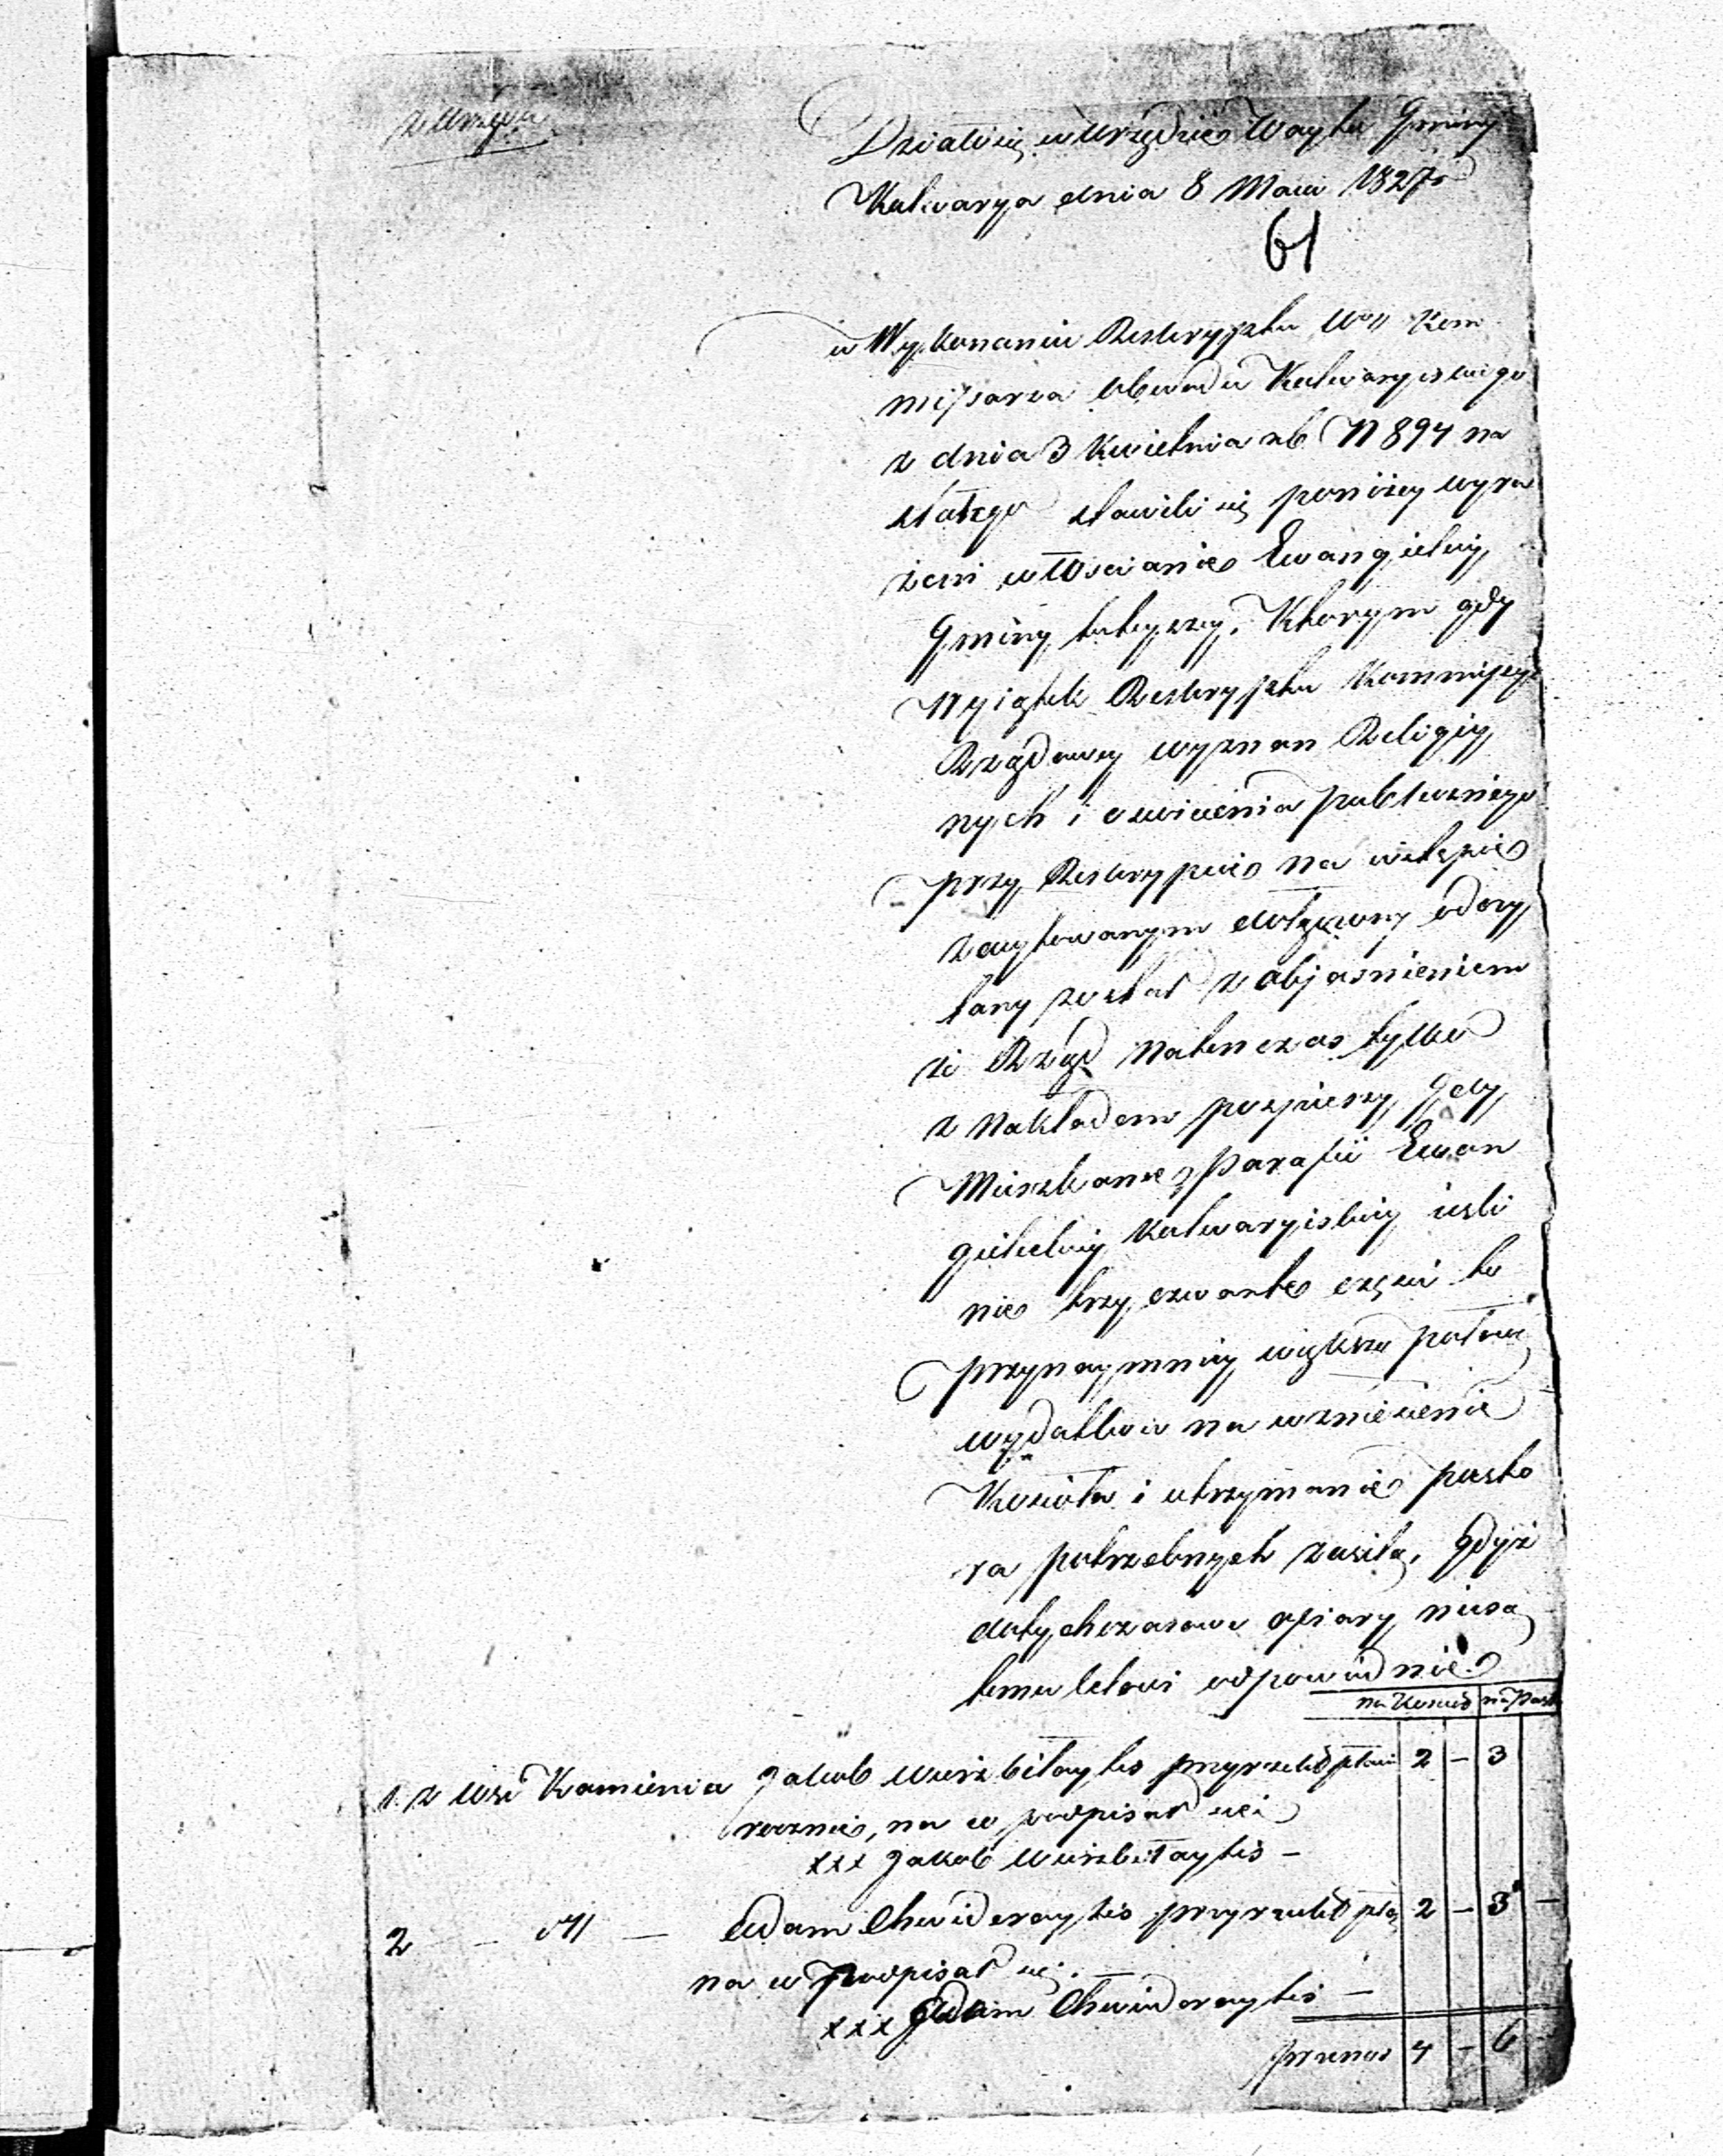 z Urzędu
Działo się w Urzędzie Wayta Gminy
Kalwarya dnia 8 Maia 1827 r
61
w Wykonaniu Reskryptu Wo Kom
missarza Obwodu Kalwaryiskiego
z dnia 3 Kwietnia rb N 894 na
stawili się poniżey wyra
żeni włoscianie Ewangieliccy
Gminy tuteyszey,Ktorym gdy
Wyiątek Reskryptu Kommissyi
Rządowey wyznan Religiy
nych i oswiecenia publicznego
przy Reskrypcie na wstępie
zacytowanym dołączony odczy
tany został z objasnieniem
że Rząd natenczas tylko
z nakładem pospieszy, Gdy
Mieszkance Parafii Ewan
gielickiey Kalwaryiskiey iesli
nie trzy czwarte części to
przynaymniey większą połowę
wydatków na wzniesienie
Koscioła i utrzymanie pasto
ra potrzebnych zasilą, gdyż
dotychczasowe ofiary niesą
temu celowi odpowiednie.
na Kosciół na Past
1. z Wsi Kamienia Jakob Wierzbitaytis przyrzekł płacić 2 – 3
rocznie, na co podpisał się
xxx Jakob Wierzbitaytis –
2 – dtt – Adam Chwideraytis przyrzekł płać 2 – 3 –
na co Podpisał się.
xxx Adam Chwideraytis –
przenos 4 – 6